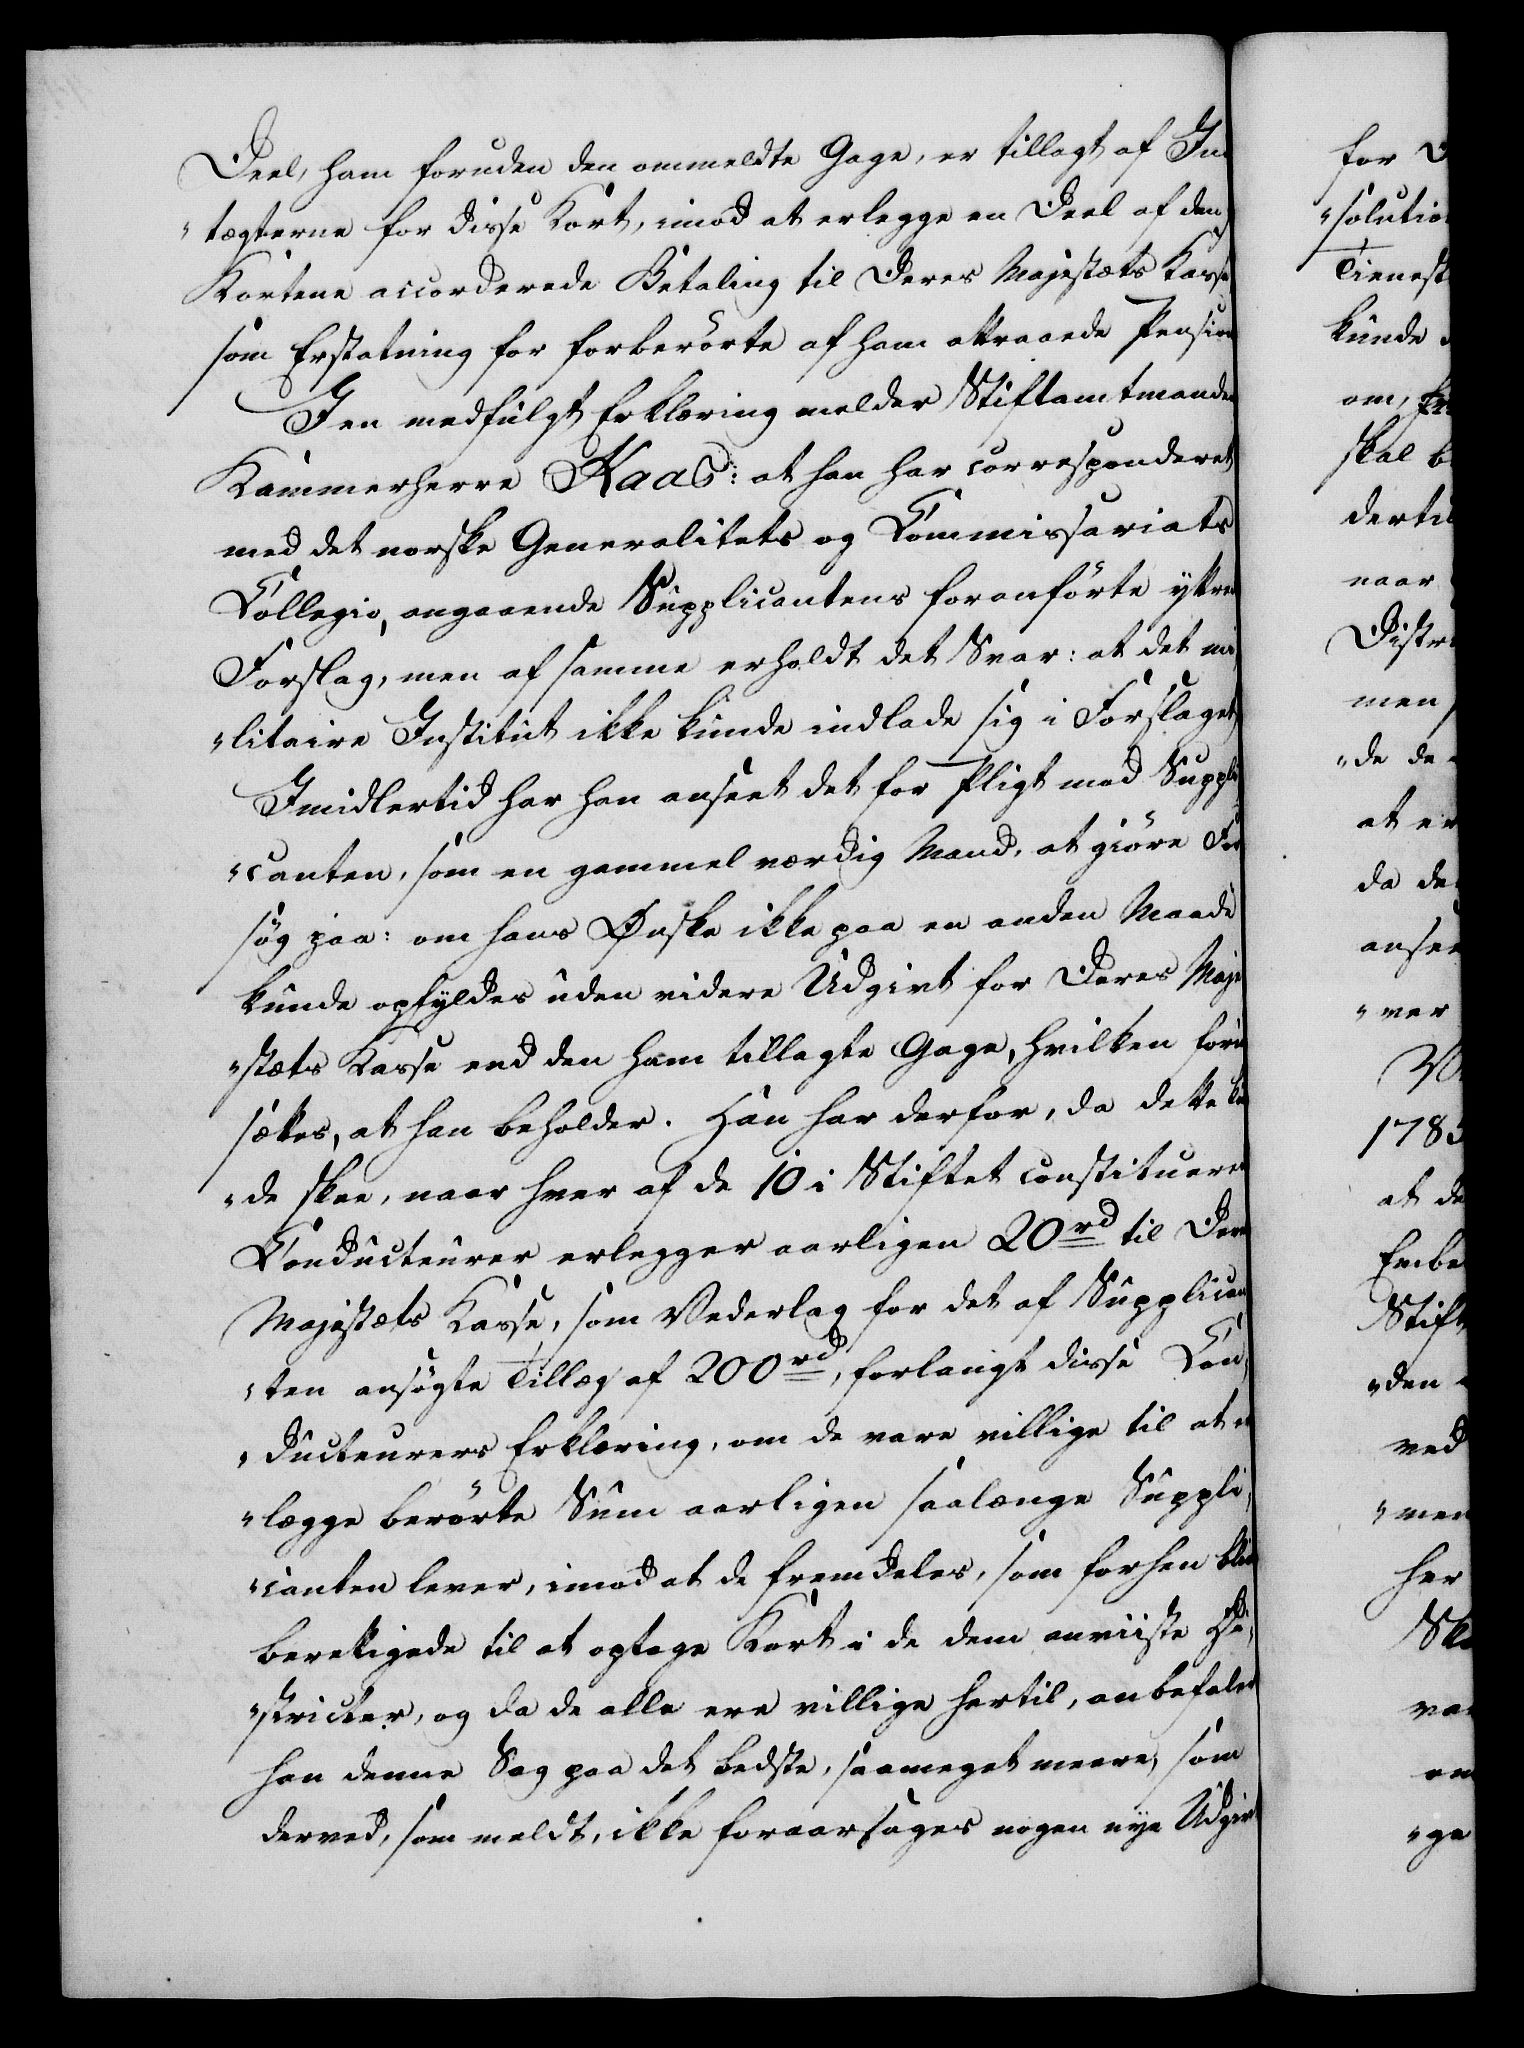 Deel, ham foruden den ommeldte Gage, er tillagt af In
"tægterne for disse Kort, imod at erlegge en Deel af den
Kortene accorderede Betaling til Deres Majestæts Kasse
som Erstatning for forberörte af ham attraaede Pension
I en medfulgt Erklæring melder Stiftamtmanden
Kammerherre Kaas: at han har correspanderet
med det norske Generalitets og Commissariats
Collegio, angaaende Supplicantens foranförte yttre
Forslag, men af samme erholdt det Svar: at det mi
"litaire Institut ikke kunde indlade sig i Forslaget,
Imidlertid har han anseet det for Pligt mod Suppli
"canten, som en gammel værdig Mand, at giöre For
søg paa: om hans Ønske ikke paa en anden Maade
kunde opfyldes uden videre Udgivt for Deres Maje
"stæts Kasse end den ham tillagte Gage, hvilken foru
sættes, at han beholder. Han har derfor, da dette kun
"de skee, naar hver af de 10 i Stiftet constituere
Conducteurer erlegger aarligen 20 rd til Deres
Majestæts Kasse, som Vederlag for det af Supplican
"ten ansøgte Tillæg af 200 rd, forlangt disse Con,
"ducteurers Erklæring, om de vare villige til at er
"lægge berörte Sum aarligen saalænge Suppli,
"canten lever, imod at de fremdeles, som forhen bliv
berettigede til at optage Kort i de dem anviiste Di,
"stricter, og da de alle ere villige hertil, anbefaler
han denne Sag paa det bedste, saameget meere, som
derved, som meldt, ikke foraarsages nogen nye Udgivt
for D
"solution
Tienest
kunde
om, fr
skal b
dertil
naar
Distri
men
"de de
at er
da de
ansee
"ver
1783
at de
Embe
Stift
"den
ved
"men
her
Sk
va
"ge